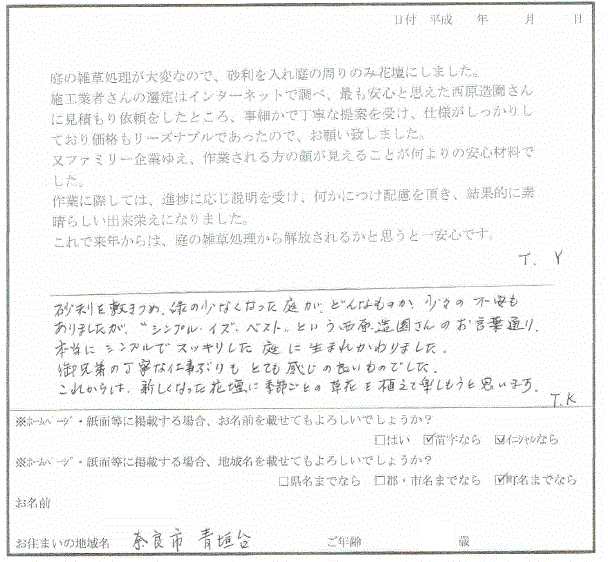 日付 平成 年 月 日
庭の雑草処理が大変なので、砂利を入れ庭の周りのみ花壇にしました。
施工業者さんの選定はインターネットで調べ、最も安心と思えた西原造園さん
に見積もり依頼をしたところ、事細かで丁寧な提案を受け、仕様がしっかりし
ており価格もリーズナブルであったので、お願い致しました。
又ファミリー企業ゆえ、作業される方の顔が見えることが何よりの安心材料で
した。
作業に際しては、進捗に応じ説明を受け、何かにつけ配慮を頂き、結果的に素
晴らしい出来栄えになりました。
これで来年からは、庭の雑草処理から解放されるかと思うと一安心です。
T. Y
砂利を敷きつめ、緑の少なくなった庭が、どんなものか、少々の不安も
ありましたが、“シンプル・イズ・ベスト”という西原造園さんのお言葉通り、
本当にシンプルでスッキリした庭に生まれかわりました。
御兄弟の丁寧な仕事ぶりもとても感じの良いものでした。
これからは、新しくなった花壇に季節ごとの草花を植えて楽しもうと思います。
T.K
※ホームページ・紙面等に掲載する場合、お名前を載せてもよろしいでしょうか？
□はい ☑苗字なら ☑イニシャルなら
※ホームページ・紙面等に掲載する場合、地域名を載せてもよろしいでしょうか？
□県名までなら □郡・市名までなら ☑町名までなら
お名前
お住まいの地域名 奈良市 青垣台 ご年齢 歳